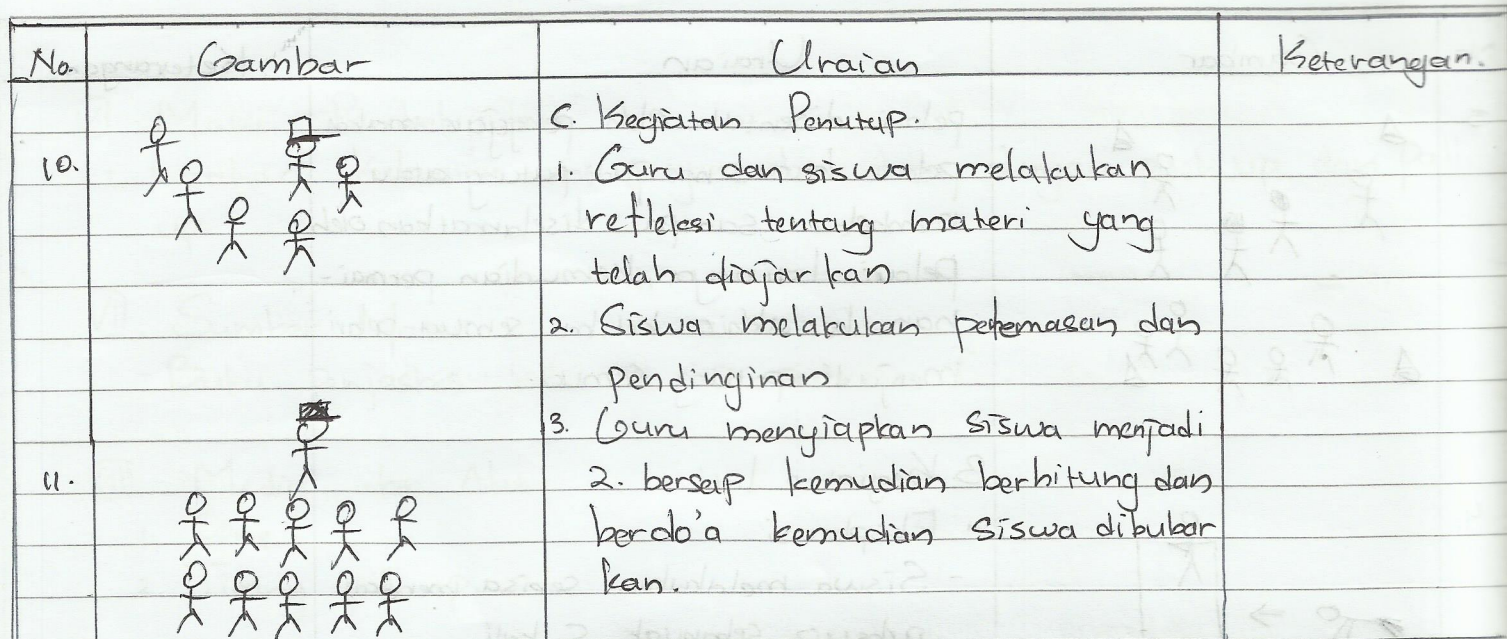 No. Gambar Uraian Keterangan.
C. Kegiatan Penutup.
10. 1. Guru dan siswa melakukan
refleksi tentang materi yang
telah diajarkan
2. Siswa melakukan pelemasan dan
pendinginan
3. Guru menyiapkan siswa menjadi
11. 2. bersap kemudian berhitung dan
berdo'a kemudian siswa dibubar
kan.